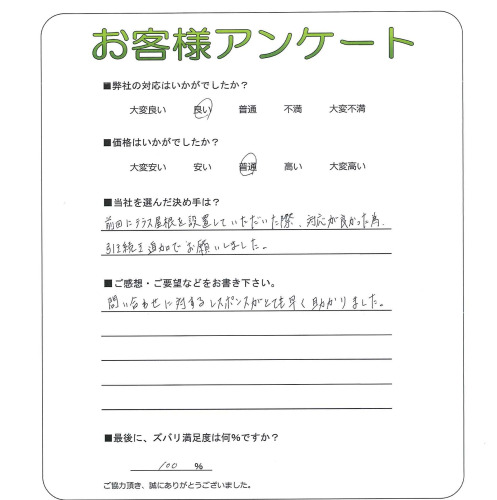 お客様アンケート
■弊社の対応はいかがでしたか？
大変良い 良い 普通 不満 大変不満
■価格はいかがでしたか？
大変安い 安い 普通 高い 大変高い
■当社を選んだ決め手は？
前回にテラス屋根を設置していただいた際、対応が良かった為、
引き続き追加でお願いしました。
■ご感想・ご要望などをお書き下さい。
問い合わせに対するレスポンスがとても早く助かりました。
■最後に、ズバリ満足度は何％ですか？
100 ％
ご協力頂き、誠にありがとうございました。